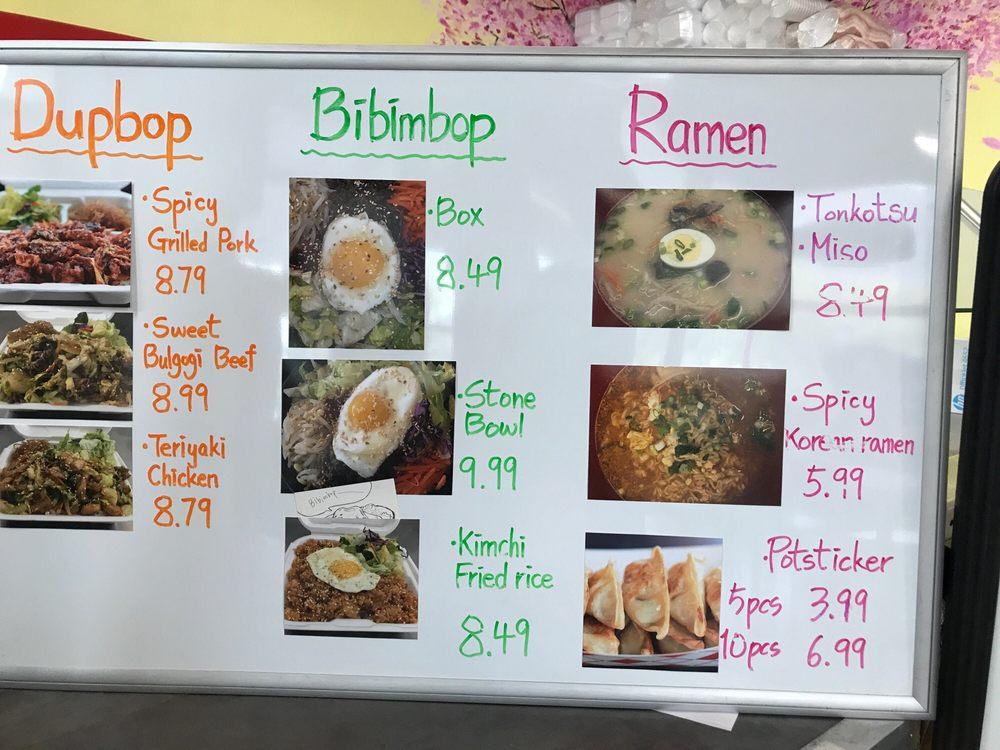 Dupbop
· Spicy
Grilled Pork
8.79
· Sweet
Bulgogi Beef
8.99
· Teriyaki
Chicken
8.79
Bibimbop
· Box
8.49
· Stone
Bowl
9.99
Bibimbop
· Kimchi
Fried rice
8.49
Ramen
· Tonkotsu
· Miso
8.49
· Spicy
Korean ramen
5.99
· Potsticker
5pcs 3.99
10pcs 6.99
hp